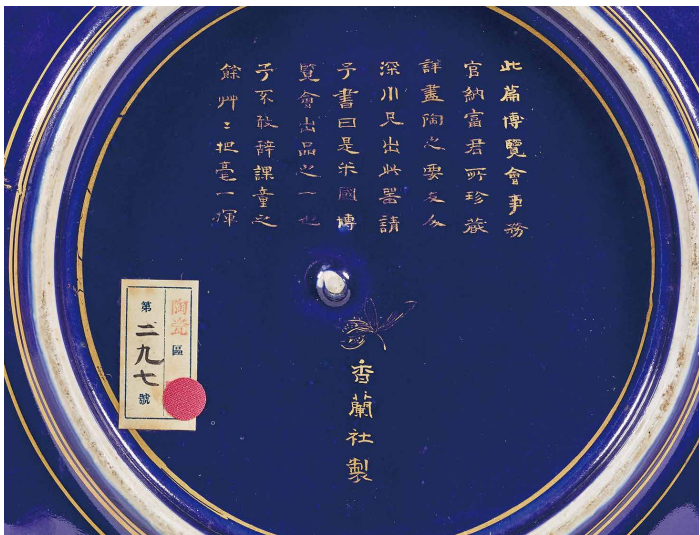 此篇博覽會事務
官納富君所珍藏
詳盡陶之要友人
深川兄出此器請
予書曰是米國博
覽會出品之一也
予不敢辞課童之
餘艸々把毫一揮
香蘭社製
陶瓷區
第二九七號